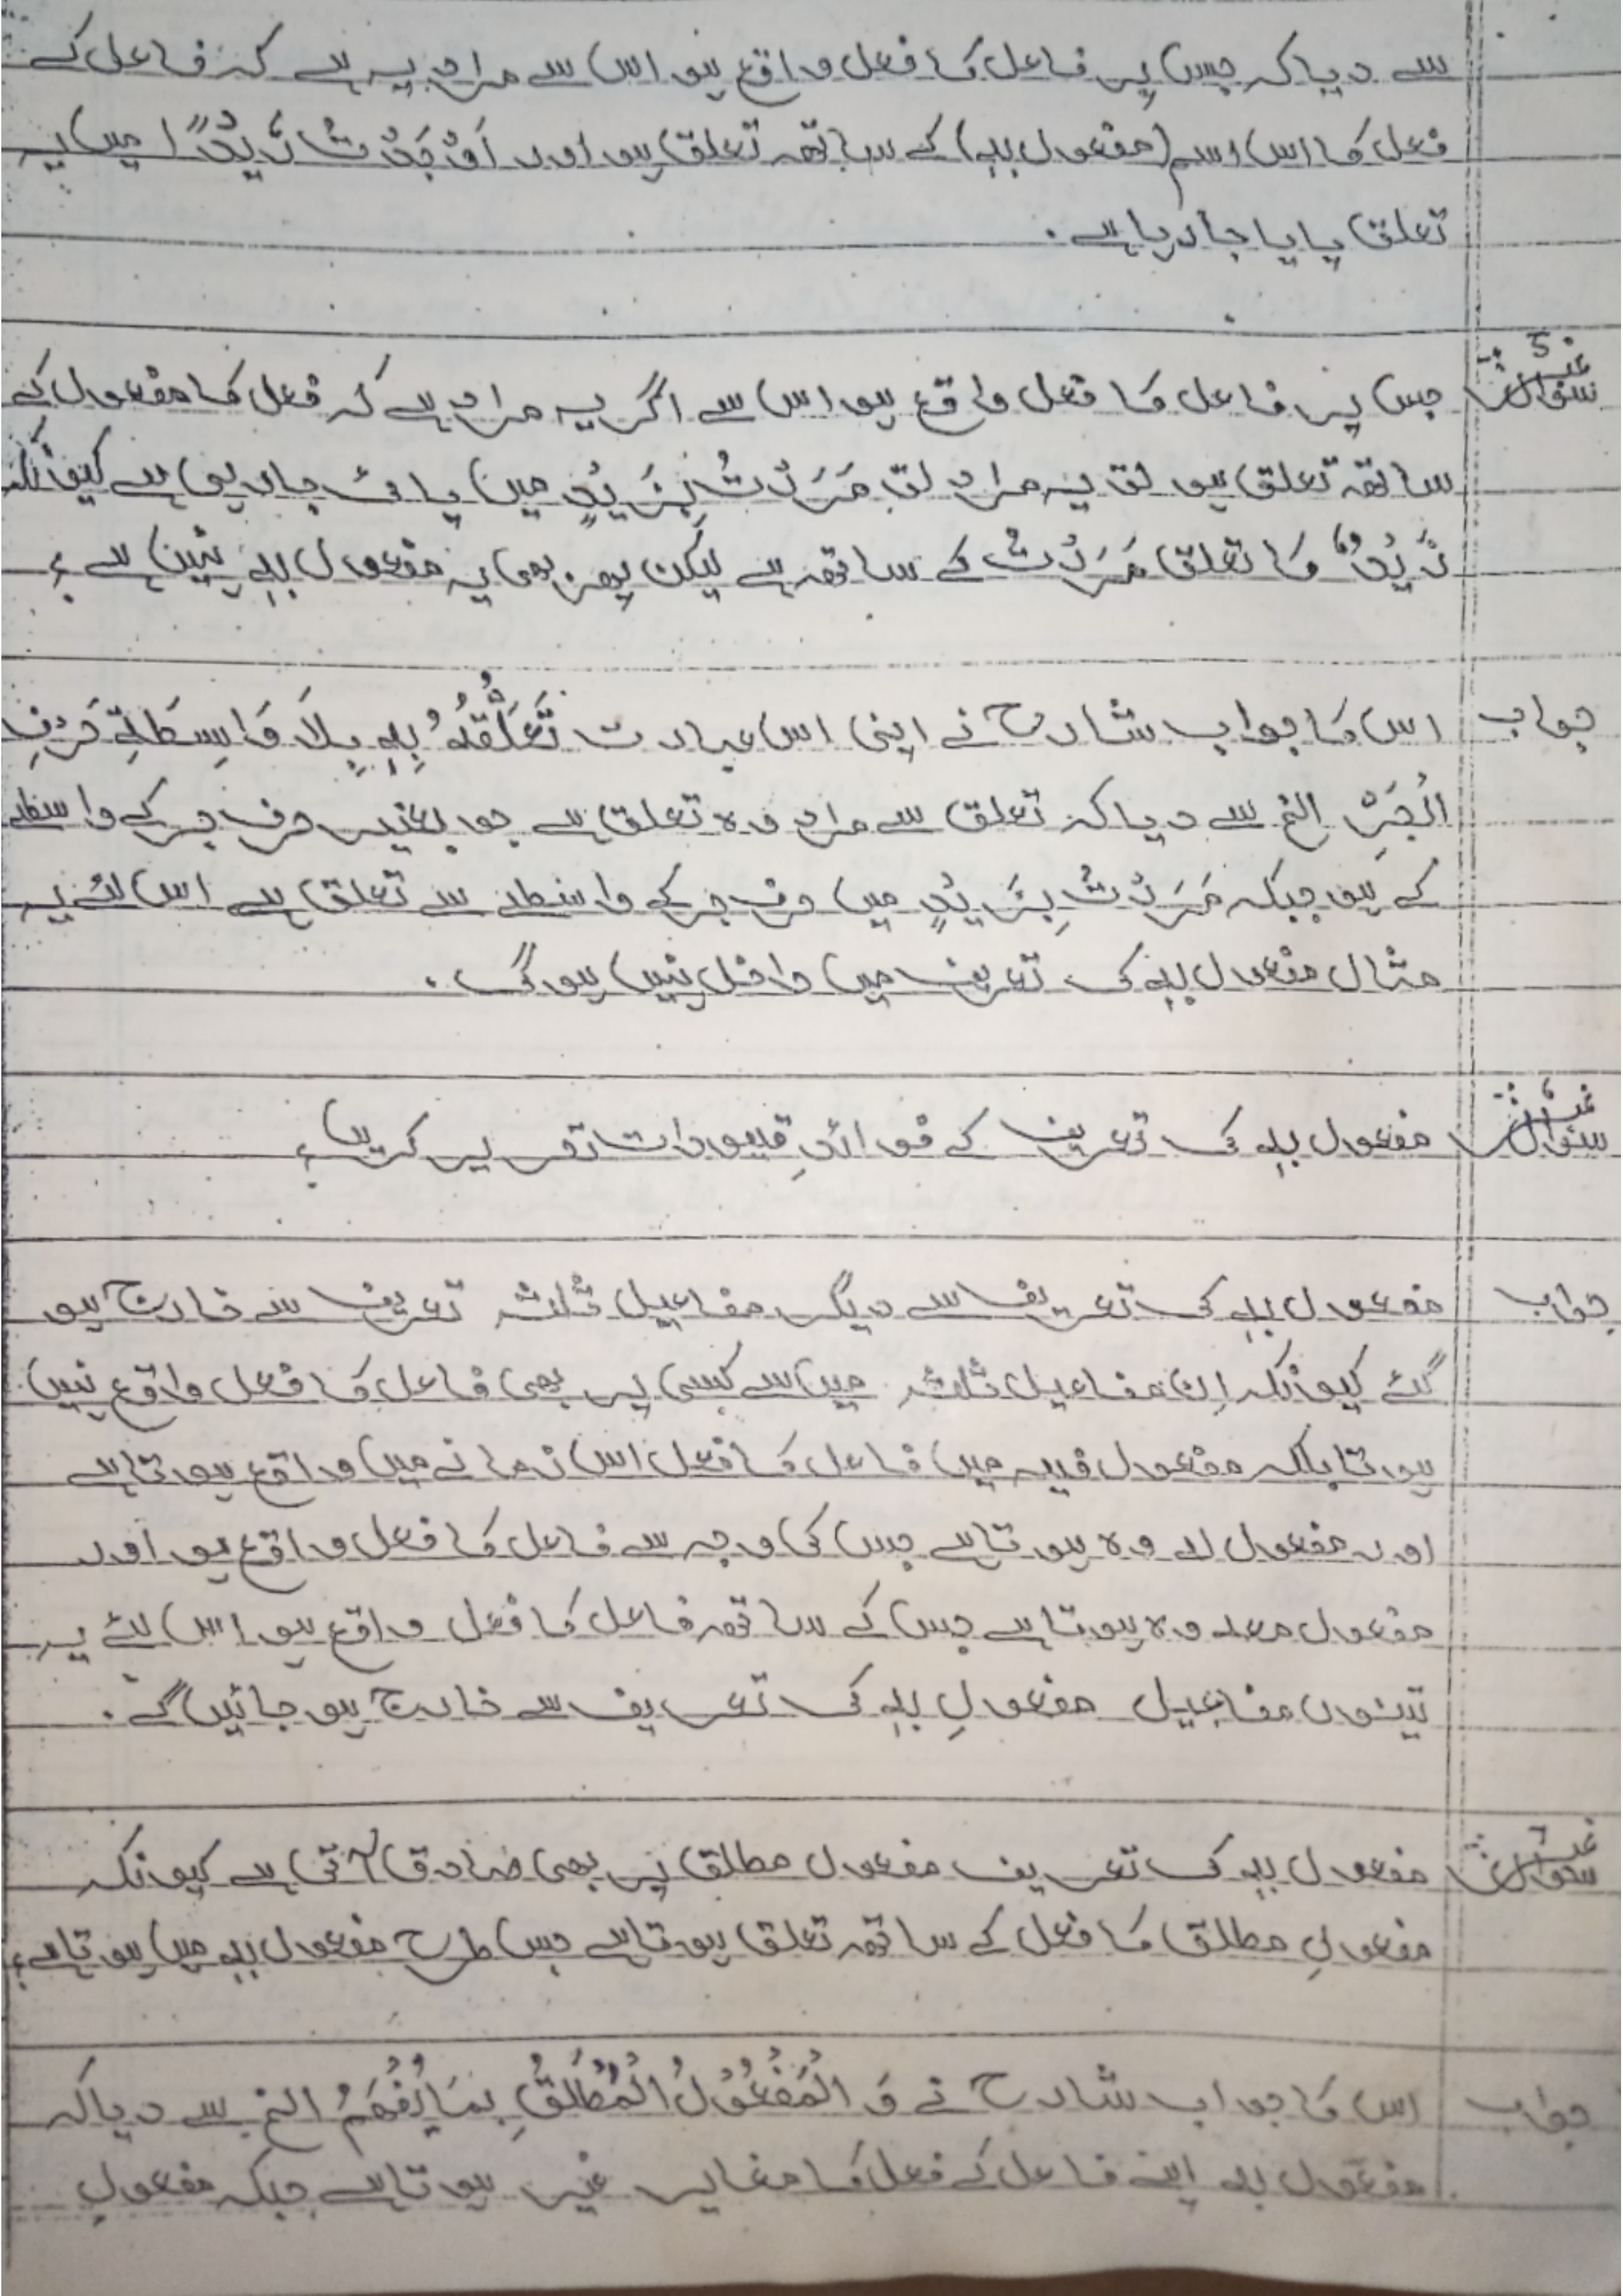 سے دیا کہ جس پر فاعل کا فعل واقع ہو اس سے مراد یہ ہے کہ فاعل کے
فعل کا اس اسم (مفعول بہٖ) کے ساتھ تعلق ہو اور اَوْجَدْتُ زَیْدًا میں یہ
تعلق پایا جا رہا ہے۔
سوال نمبر 5 جس پر فاعل کا فعل واقع ہو اس سے اگر یہ مراد ہے کہ فعل کا مفعول کے
ساتھ تعلق ہو تو یہ مراد تو مَرَرْتُ بِزَیْدٍ میں پائی جا رہی ہے کیونکہ
زَیْدٌ کا تعلق مَرَرْتُ کے ساتھ ہے لیکن پھر بھی یہ مفعول بہٖ نہیں ہے؟
جواب اس کا جواب شارح نے اپنی اس عبارت تَعَلُّقُهُ بِهٖ بِلَا وَاسِطَةِ حَرْفِ
الْجَرِّ الخ سے دیا کہ تعلق سے مراد وہ تعلق ہے جو بغیر حرف جر کے واسطے
کے ہو جبکہ مَرَرْتُ بِزَیْدٍ میں حرف جر کے واسطے سے تعلق ہے اس لئے یہ
مثال مفعول بہٖ کی تعریف میں داخل نہیں ہوگی۔
سوال نمبر 6 مفعول بہٖ کی تعریف کے فوائدِ قیودات تحریر کریں؟
جواب مفعول بہٖ کی تعریف سے دیگر مفاعیل ثلثہ تعریف سے خارج ہو
گئے کیونکہ اِن مفاعیل ثلثہ میں سے کسی پر بھی فاعل کا فعل واقع نہیں
ہوتا بلکہ مفعول فیہ میں فاعل کا فعل اس زمانے میں واقع ہوتا ہے
اور مفعول لہ وہ ہوتا ہے جس کی وجہ سے فاعل کا فعل واقع ہو اور
مفعول معہ وہ ہوتا ہے جس کے ساتھ فاعل کا فعل واقع ہو اس لئے یہ
تینوں مفاعیل مفعولِ بہٖ کی تعریف سے خارج ہو جائیں گے۔
سوال نمبر 7 مفعول بہٖ کی تعریف مفعول مطلق پر بھی صادق آتی ہے کیونکہ
مفعولِ مطلق کا فعل کے ساتھ تعلق ہوتا ہے جس طرح مفعول بہٖ میں ہوتا ہے؟
جواب اس کا جواب شارح نے وَ الْمَفْعُوْلُ الْمُطْلَقُ بِمَا یُفْهَمُ الخ سے دیا کہ
مفعول بہٖ اپنے فاعل کے فعل کا مغایر غیر ہوتا ہے جبکہ مفعولِ